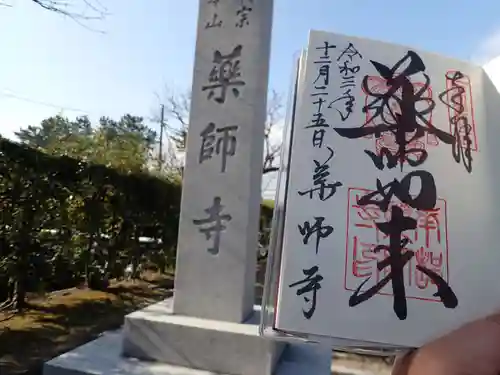 宗
山
藥師寺
奉拝
令和三年
十二月二十五日
薬師如来
薬師寺